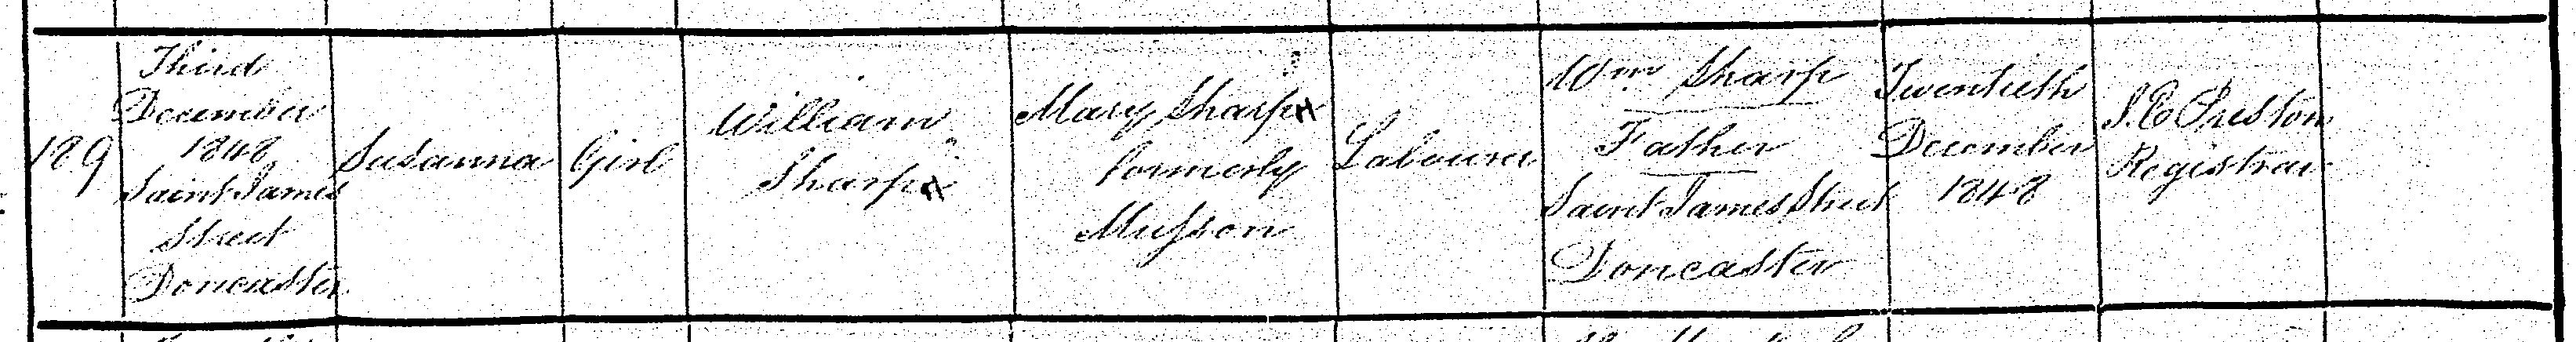 189
Third
December
1848
Saint James
Street
Doncaster
Susanna
Girl
William
Sharp
Mary Sharp
formerly
Musson
Labourer
Wm Sharp
Father
Saint James Street
Doncaster
Twentieth
December
1848
Preston
Registrar